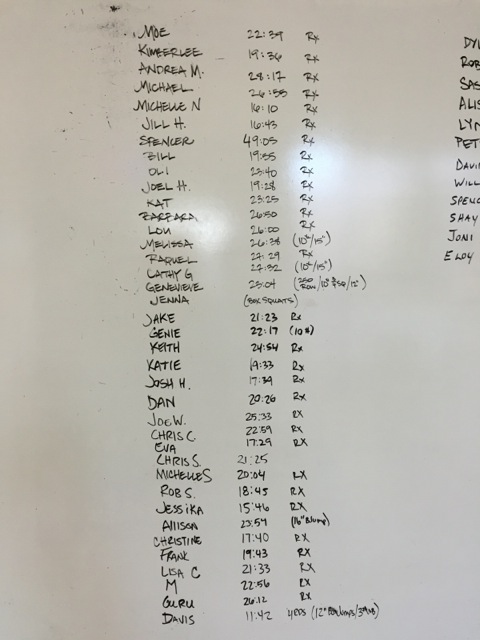 MOE 22:39 Rx
KIMBERLEE 19:36 Rx
ANDREA M. 28:17 Rx
MICHAEL 26:55 Rx
MICHELLE N 16:10 Rx
JILL H. 16:43 Rx
SPENCER 49:05 Rx
BILL 19:55 Rx
OLI 23:40 Rx
JOEL H. 19:28 Rx
KAT 23:25 Rx
BARBARA 26:50 Rx
LOU 26:00 Rx
MELISSA 26:38 (10#/15")
RAQUEL 27:29 Rx
CATHY G 27:32 (10#/15")
GENEVIEVE 25:04
JENNA (BOX SQUATS)
JAKE 21:23 Rx
GENIE 22:17 (10#)
KEITH 24:54 Rx
KATIE 19:33 Rx
JOSH H. 17:39 Rx
DAN 20:26 Rx
JOE W. 25:33 RX
CHRIS C. 22:59 RX
EVA 17:29 RX
CHRIS S. 21:25
MICHELLE S 20:04 RX
ROB S. 18:45 RX
JESSIKA 15:46 RX
ALLISON 23:57 (16" BJump)
CHRISTINE 17:40 RX
FRANK 19:43 RX
LISA C 21:33 RX
M 22:56 RX
GURU 26:12 RX
DAVIS 11:42
DY
ROB
SAS
ALIS
LYN
PET
DAVI
WILL
SPENC
SHAY
JONI
ELOY